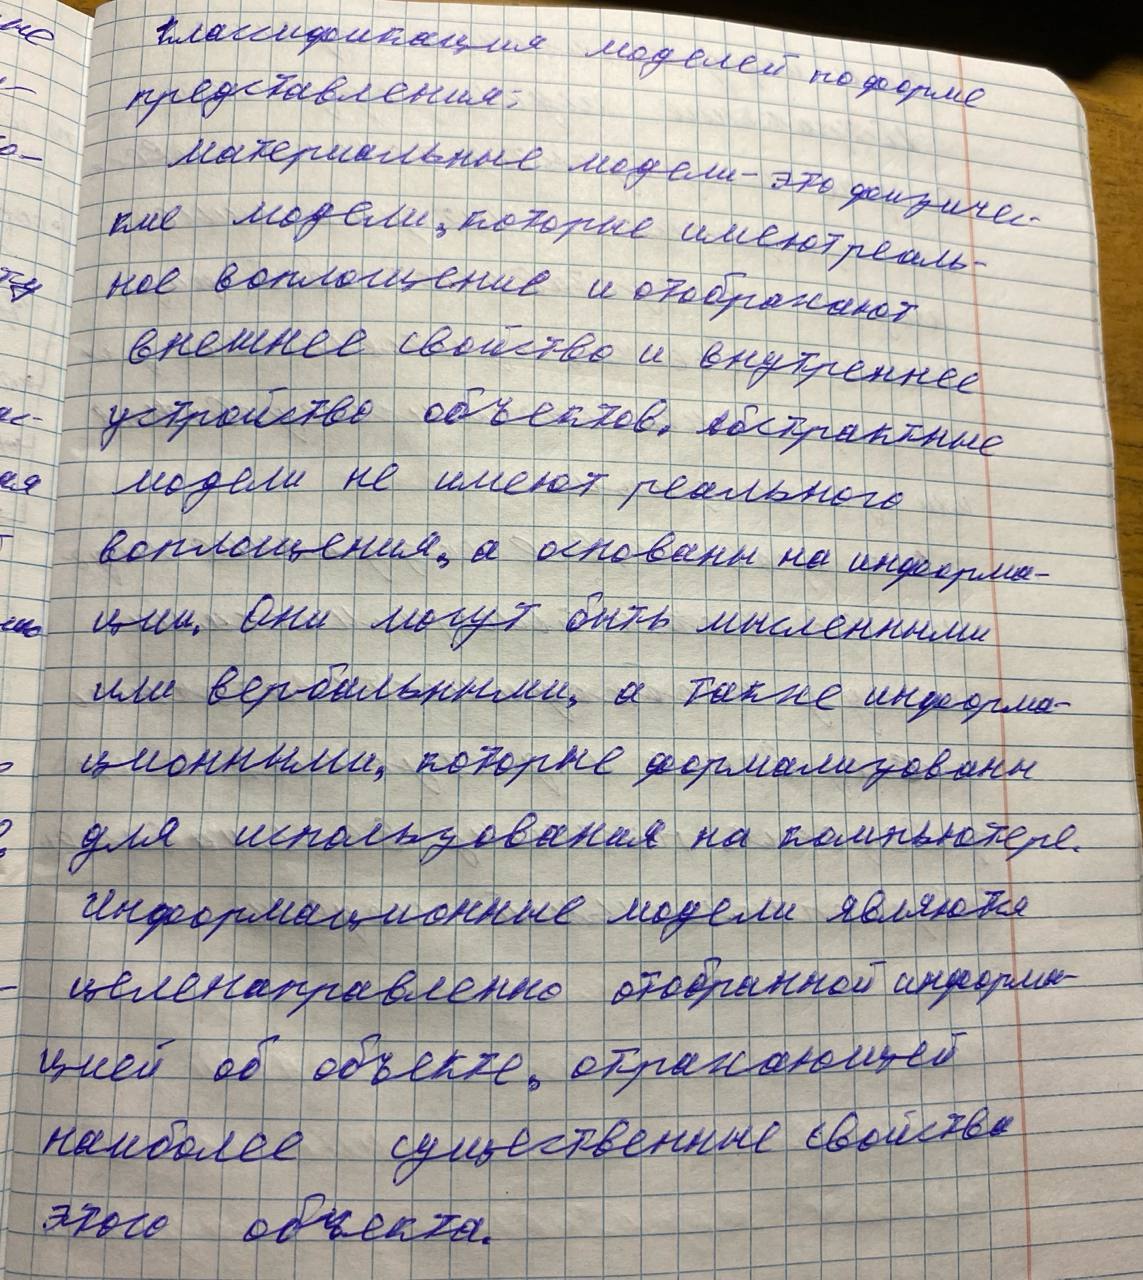 Классификация моделей по форме
представления:
Материальные модели - это физичес-
кие модели, которые имеют реаль-
ное воплощение и отображают
внешнее свойство и внутреннее
устройство объектов. Абстрактные
модели не имеют реального
воплощения, а основаны на информа-
ции. Они могут быть мысленными
или вербальными, а также информа-
ционными, которые формализованы
для использования на компьютере.
Информационные модели являются
целенаправленно отобранной информа-
цией об объекте, отражающей
наиболее существенные свойства
этого объекта.